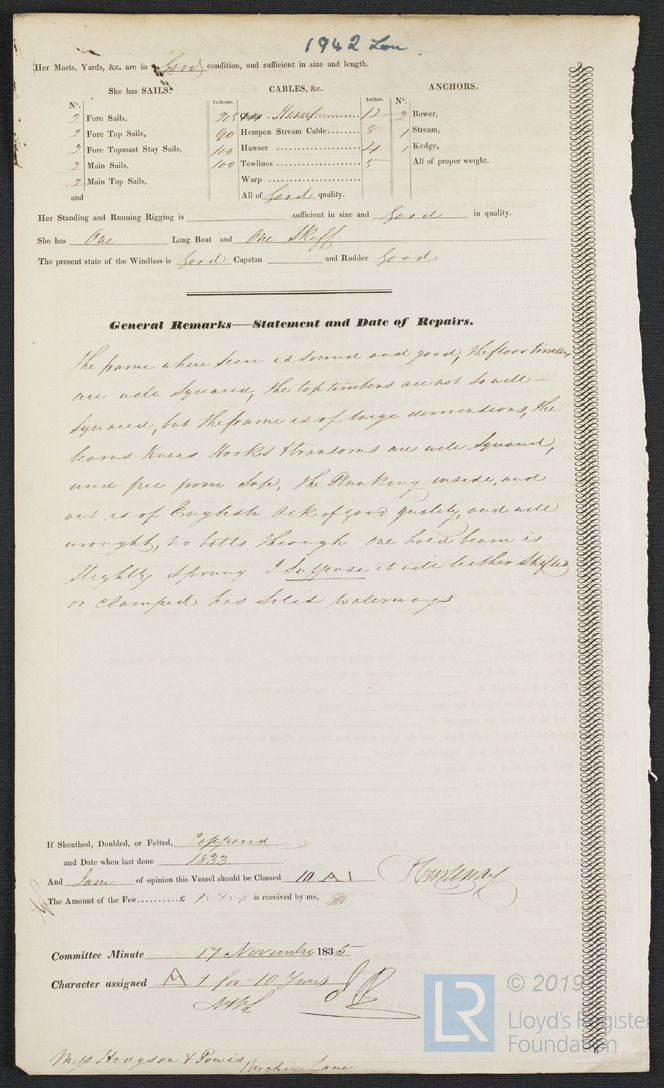 1942 Lon
Her Masts, Yards, &c. are in Good condition, and sufficient in size and length.
She has SAILS. CABLES, &c. ANCHORS.
N°. Fathoms. Inches. N°.
2 Fore Sails, 205 Hemp 12 2 Bower,
2 Fore Top Sails, 90 Hempen Stream Cable 8 1 Stream,
2 Fore Topmast Stay Sails, 100 Hawser 4 1 Kedge,
2 Main Sails, 100 Towlines 5 All of proper weight.
2 Main Top Sails, Warp
and All of Good quality.
Her Standing and Running Rigging is sufficient in size and Good in quality.
She has One Long Boat and One Skiff
The present state of the Windlass is Good Capstan and Rudder Good
General Remarks—Statement and Date of Repairs.
The frame where seen is sound and good, the floor timbers
are well squared, the toptimbers are not so well –
squared, but the frame is of large dimensions, the
beams Knees Hooks & transoms are well squared,
and free from Sap, the Planking inside, and
out is of English Oak of good quality, and well
wrought, no bolts through one hold beam is
slightly sprung I suppose it will be ther shifted
or clamped has solid waterways
If Sheathed, Doubled, or Felted, Coppered
and Date when last done 1833
And I am of opinion this Vessel should be Classed 10 A 1
The Amount of the Fee £ is received by me,
Committee Minute 17 November 1835
Character assigned A 1 for 10 Years
Mess Hodgson & Powis Birchin Lane
LR © 2019
Lloyd's Register
Foundation